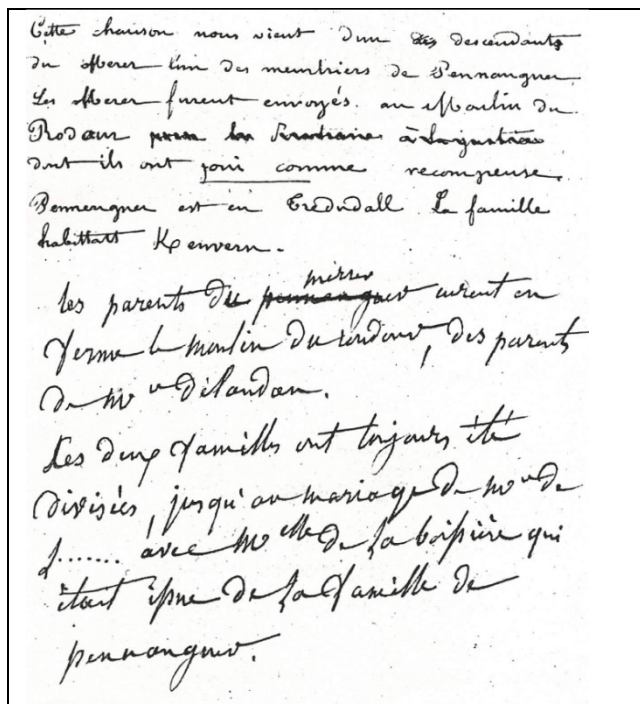 Cette chanson nous vient d'un des descendants
du Merer l'un des meurtriers de Pennanguer.
Les Merer furent envoyés au Moulin du
Rodour pour la
dont ils ont joui comme recompense.
Pennenguer est en Tredudall La famille
habittait Kenvern.
mérer
les parents du pennenguer eurent en
ferme le moulin du roudour, des parents
de mr
Les deux familles ont toujours été
divisées, jusqu'au mariage de mr de
L....... avec Melle de La boissière qui
était issue de La famille de
pennanguer.